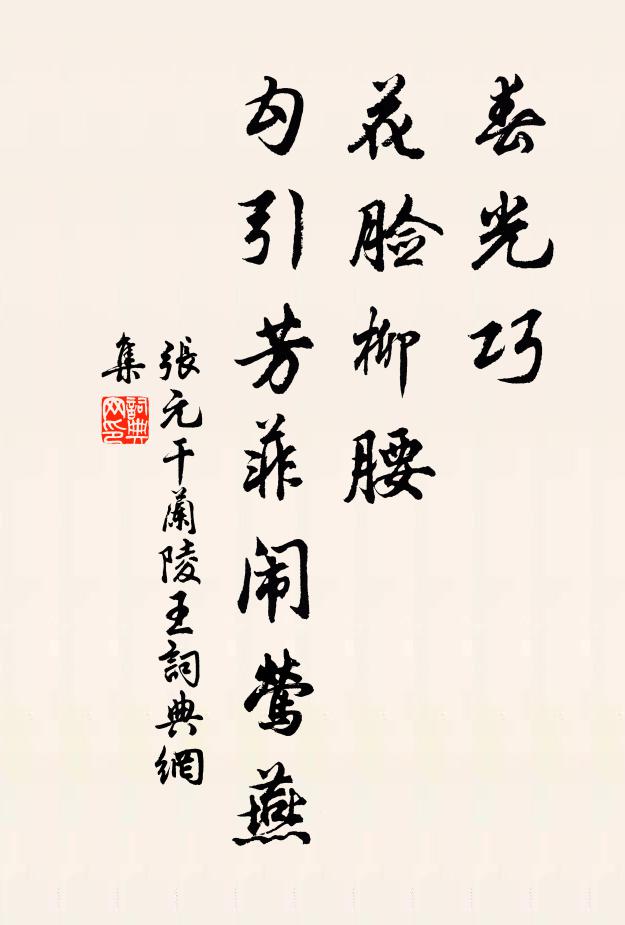 春光巧
花脸柳腰
勾引芳菲闹莺燕
張元干蘭陵王詞典網
集
詞典
网印